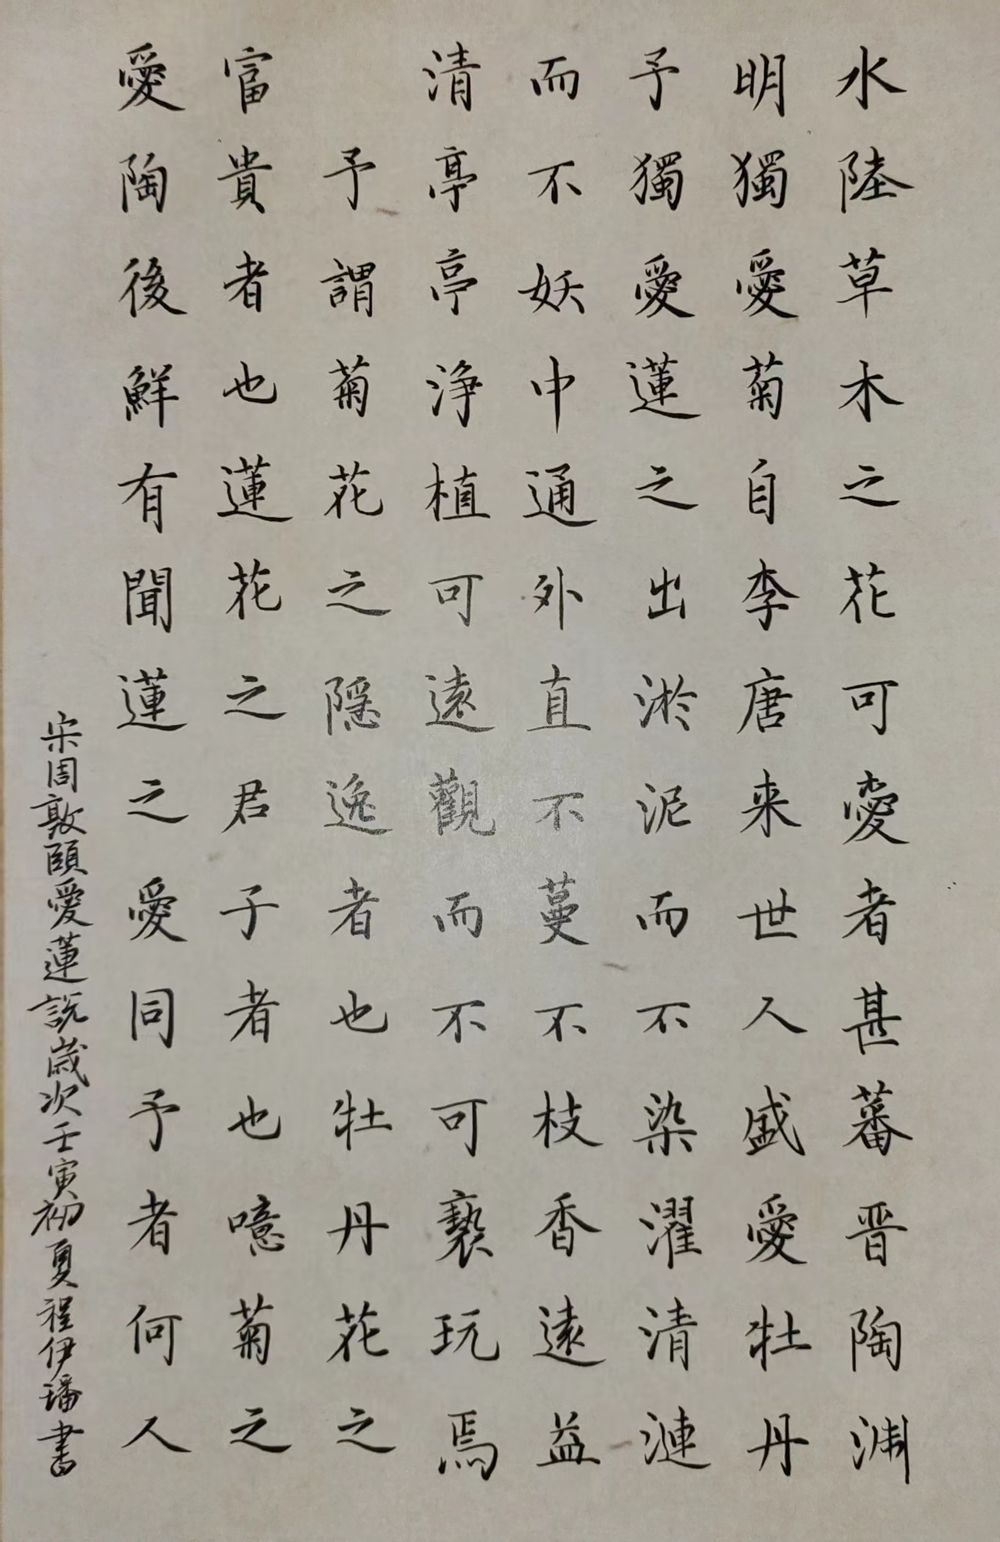 水陸草木之花可愛者甚蕃晋陶渊
明獨愛菊自李唐来世人盛愛牡丹
予獨愛蓮之出淤泥而不染濯清漣
而不妖中通外直不蔓不枝香遠益
清亭亭浄植可遠觀而不可褻玩焉
予謂菊花之隱逸者也牡丹花之
富貴者也蓮花之君子者也噫菊之
愛陶後鮮有聞蓮之愛同予者何人
宋周敦頤愛蓮說歲次壬寅初夏程伊璠書